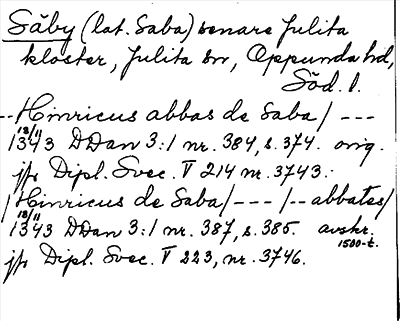 Säby (lat. Saba) senare Julita
kloster, Julita sn, Oppunda hd,
Söd. l.
-- Hinricus abbas de Saba / ---
18/11
1343 DDan 3:1 nr. 384, s. 374. orig.
jfr Dipl. Svec. V 214 nr. 3743.
/Hinricus de Saba/ --- /-- abbates/
18/11
1343 DDan 3:1 nr. 387, s. 385. avskr.
1500-t.
jfr Dipl. Svec. V 223, nr. 3746.